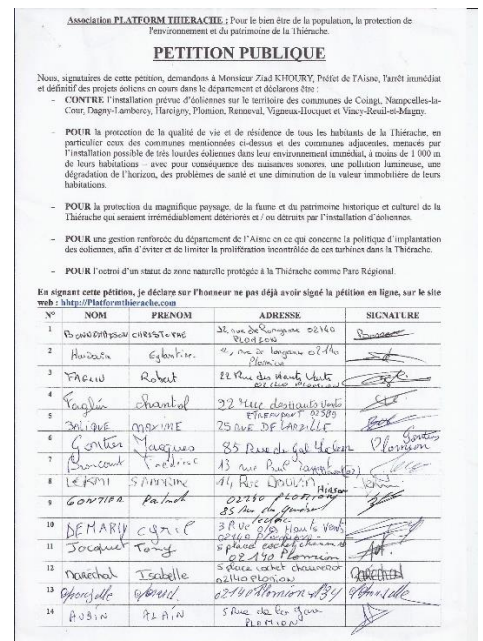 Association PLATFORM THIERACHE : Pour le bien être de la population, la protection de
l'environnement et du patrimoine de la Thiérache.
PETITION PUBLIQUE
Nous, signataires de cette pétition, demandons à Monsieur Ziad KHOURY, Préfet de l'Aisne, l'arrêt immédiat
et définitif des projets éoliens en cours dans le département et déclarons être :
- CONTRE l'installation prévue d'éoliennes sur le territoire des communes de Coingt, Nampcelles-la-
Cour, Dagny-Lambercy, Harcigny, Plomion, Renneval, Vigneux-Hocquet et Vincy-Reuil-et-Magny.
- POUR la protection de la qualité de vie et de résidence de tous les habitants de la Thiérache, en
particulier ceux des communes mentionnées ci-dessus et des communes adjacentes, menacés par
l'installation possible de très lourdes éoliennes dans leur environnement immédiat, à moins de 1 000 m
de leurs habitations – avec pour conséquence des nuisances sonores, une pollution lumineuse, une
dégradation de l'horizon, des problèmes de santé et une diminution de la valeur immobilière de leurs
habitations.
- POUR la protection du magnifique paysage, de la faune et du patrimoine historique et culturel de la
Thiérache qui seraient irrémédiablement détériorés et / ou détruits par l'installation d'éoliennes.
- POUR une gestion renforcée du département de l'Aisne en ce qui concerne la politique d'implantation
des éoliennes, afin d'éviter et de limiter la prolifération incontrôlée de ces turbines dans la Thiérache.
- POUR l'octroi d'un statut de zone naturelle protégée à la Thiérache comme Parc Régional.
En signant cette pétition, je déclare sur l'honneur ne pas déjà avoir signé la pétition en ligne, sur le site
web : hhttp://Platformthierache.com
N° NOM PRENOM ADRESSE SIGNATURE
1 CHRISTOPHE 02140
PLOMION
2 Eglantine 02140
Plomion
3 Robert 22 Rue des Hauts Vents
02140 PLOMION
4 Chantal 22 rue des Hauts Vents
5 MAXIME 25 RUE DE
6 Gontier Jacques 85 Rue du Gal Leclerc Plomion Gontier
7 13 rue
8 SANDRINE 14 Rue Hirson
9 GONTIER Patrick 02140 PLOMION
85 Rue du Général
Leclerc
10 DEMARLY Cyril 3 Rue des Hauts Vents
02140
11 Jocquet Tony 5 place cochet
02140 Plomion
12 Maréchal Isabelle 5 place cochet
02140 Plomion MARECHAL
13 02140 Plomion
14 AUBIN ALAIN 5 Rue de
PLOMION